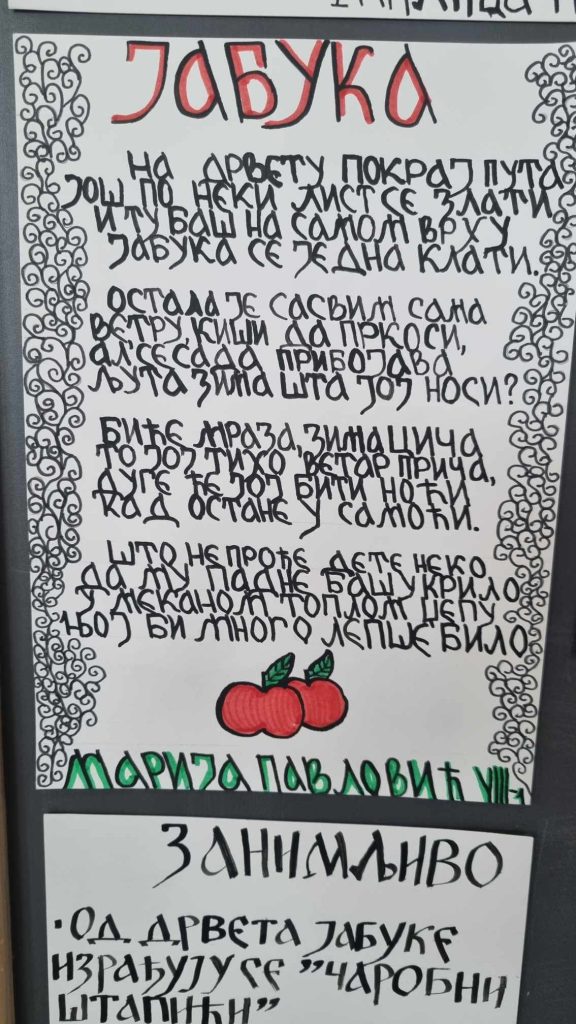 ЈАБУКА
НА ДРВЕТУ ПОКРАЈ ПУТА
ЈОШ ПО НЕКИ ЛИСТ СЕ ЗЛАТИ
И ТУ БАШ НА САМОМ ВРХУ
ЈАБУКА СЕ ЈЕДНА КЛАТИ.
ОСТАЛА ЈЕ САСВИМ САМА
ВЕТРУ, КИШИ ДА ПРКОСИ,
АЛ' СЕ САДА ПРИБОЈАВА
ЉУТА ЗИМА ШТА ЈОЈ НОСИ?
БИЋЕ МРАЗА, ЗИМА ЦИЧА
ТО ЈОЈ ТИХО ВЕТАР ПРИЧА,
ДУГЕ ЋЕ ЈОЈ БИТИ НОЋИ
КАД ОСТАНЕ У САМОЋИ.
ШТО НЕ ПРОЂЕ ДЕТЕ НЕКО
ДА МУ ПАДНЕ БАШ У КРИЛО
У МЕКАНОМ ТОПЛОМ ЏЕПУ
ЊОЈ БИ МНОГО ЛЕПШЕ БИЛО
МАРИЈА ПАВЛОВИЋ VIII-1
ЗАНИМЉИВО
•ОД ДРВЕТА ЈАБУКЕ
ИЗРАЂУЈУ СЕ "ЧАРОБНИ
ШТАПИЋИ"